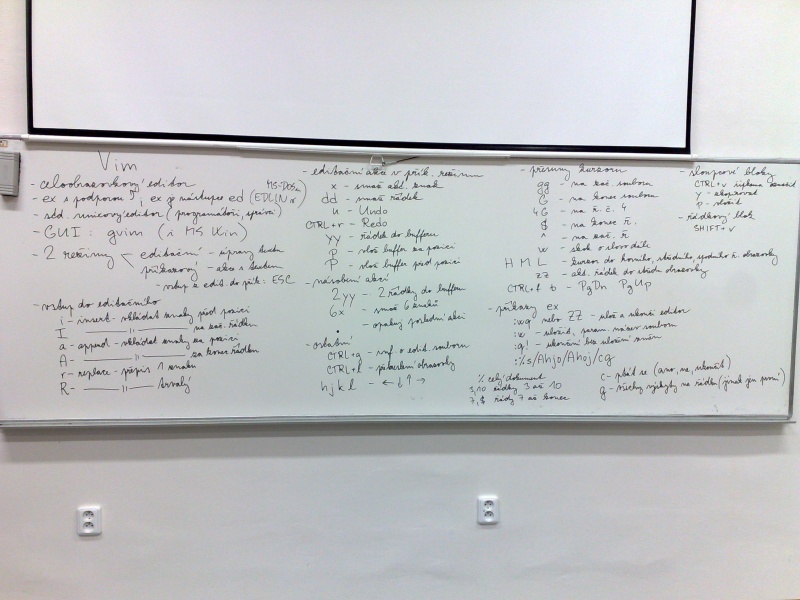 Vim
- celoobrazovkový editor
- ex s podporou, ex je nástupce ed (EDLIN v MS-DOSu)
- std. unixový editor (programátoři, správci)
- GUI: gvim (i MS Win)
- 2 režimy
editační - úpravy textu
příkazový - akce s textem
- vstup z edit. do přík.: ESC
- vstup do editačního
i - insert - vkládat znaky před pozici
I — " — na zač. řádku
a - append - vkládat znaky za pozici
A — " — za konec řádku
r - replace - přepis 1 znaku
R — " — trvalý
- editační akce v přík. režimu
x - smaž akt. znak
dd - smaž řádek
u - Undo
CTRL+r - Redo
yy - řádek do bufferu
p - vlož buffer za pozici
P - vlož buffer před pozici
- násobení akcí
2yy - 2 řádky do bufferu
6x - smaž 6 znaků
. - opakuj poslední akci
- ostatní
CTRL+g - inf. o edit. souboru
CTRL+l - překreslení obrazovky
h j k l - ← ↓ ↑ →
- přesuny kurzoru
gg - na zač. souboru
G - na konec souboru
4G - na ř. č. 4
$ - na konec ř.
^ - na zač. ř.
w - skok o slovo dále
H M L - kurzor do horního, středního, spodního ř. obrazovky
zz - akt. řádek do středu obrazovky
CTRL+f b - PgDn PgUp
- příkazy ex
:wq nebo ZZ - ulož a ukonči editor
:w - uložit, param. název souboru
:q! - ukončení bez uložení změn
:%s/Ahjo/Ahoj/cg
% celý dokument
3,10 řádky 3 až 10
7,$ řádky 7 až konec
c - ptát se (ano, ne, ukončit)
g - všechny výskyty na řádku (jinak jen první)
- sloupcové bloky
CTRL+v
y - zkopírovat
p - vložit
- řádkový blok
SHIFT+v